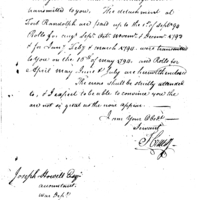 transmitted to you. His detachment at
Fort Randolph are paid up to the 1st of Sept 94
Rolls for Augt Septr Octr Novemr & Decemr 1793
& for Jany Feby & March 1794. was transmitted
to you on the 15th of May 1794. and Rolls for
April May June & July are herewith enclosed
The men shall be strictly attended
to, & I expect to be able to convince you the
are not as great as they now appear
I am Your Obedt
Servant
Joseph Howell Esqr
accountant
War Dept